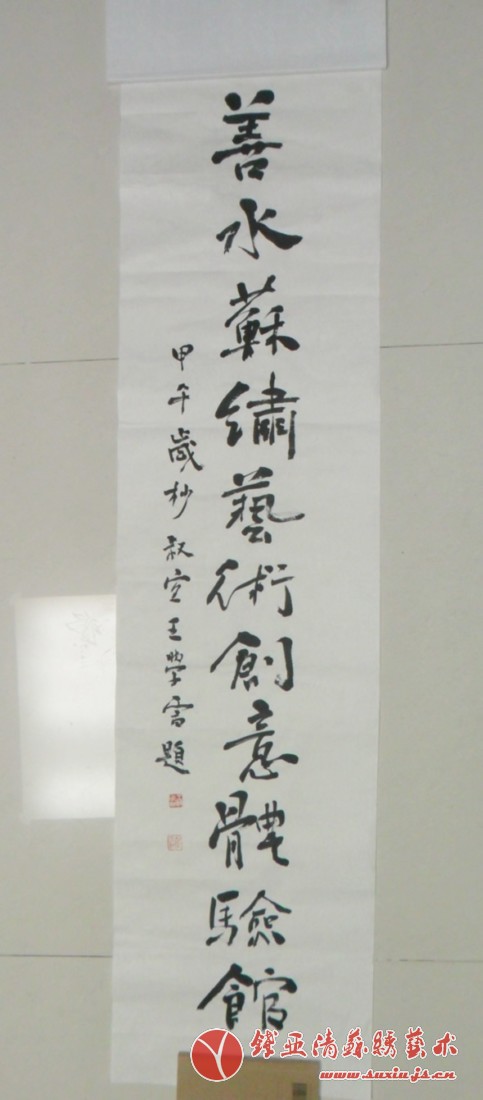 善水蘇繡藝術創意體驗館
甲午歲杪叙定王學雷題
钱亚清苏绣艺术
www.suxiu.js.cn